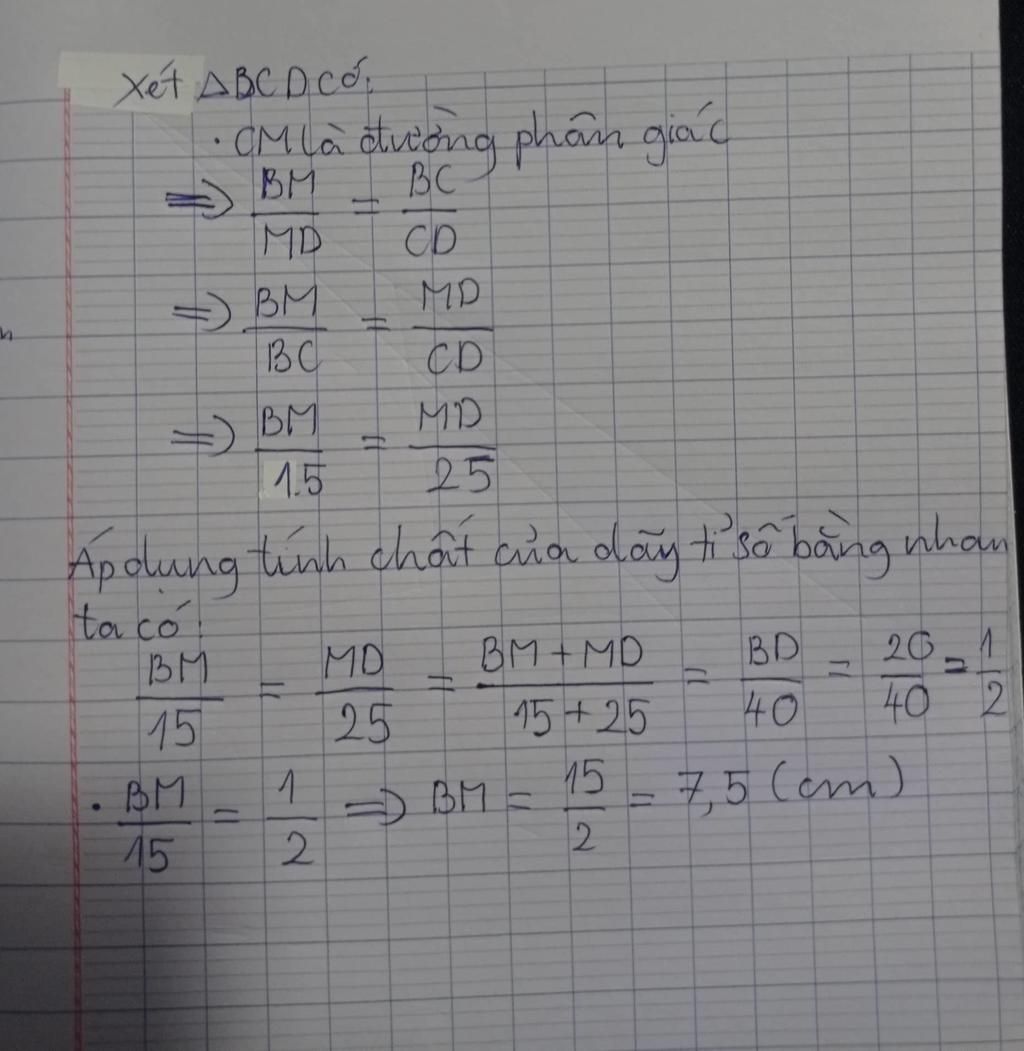 Xét ΔBCD có:
· CM là đường phân giác
=> BM/MD = BC/CD
=> BM/BC = MD/CD
=> BM/1.5 = MD/25
Áp dụng tính chất của dãy tỉ số bằng nhau
ta có:
BM/15 = MD/25 = BM + MD/15 + 25 = BD/40 = 20/40 = 1/2
· BM/15 = 1/2 => BM = 15/2 = 7,5 (cm)